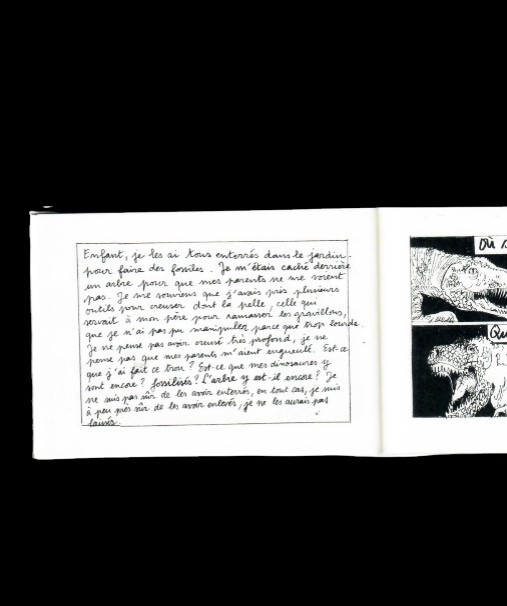 Enfant, je les ai tous enterrés dans le jardin
pour faire des fossiles. Je m'étais caché derrière
un arbre pour que mes parents ne me voient
pas. Je me souviens que j'avais pris plusieurs
outils pour creuser dont la pelle, celle qui
servait à mon père pour ramasser les gravillons,
que je n'ai pas pu manipuler parce que trop lourde.
Je ne pense pas avoir creusé très profond, je ne
pense pas que mes parents m'aient engueulé. Est-ce
que j'ai fait ce trou ? Est-ce que mes dinosaures y
sont encore ? fossilisés ? L'arbre y est-il encore ? Je
ne suis pas sûr de les avoir enterrés, en tout cas, je suis
à peu près sûr de les avoir enlevés, je ne les aurais pas
laissés.
Où
Qu